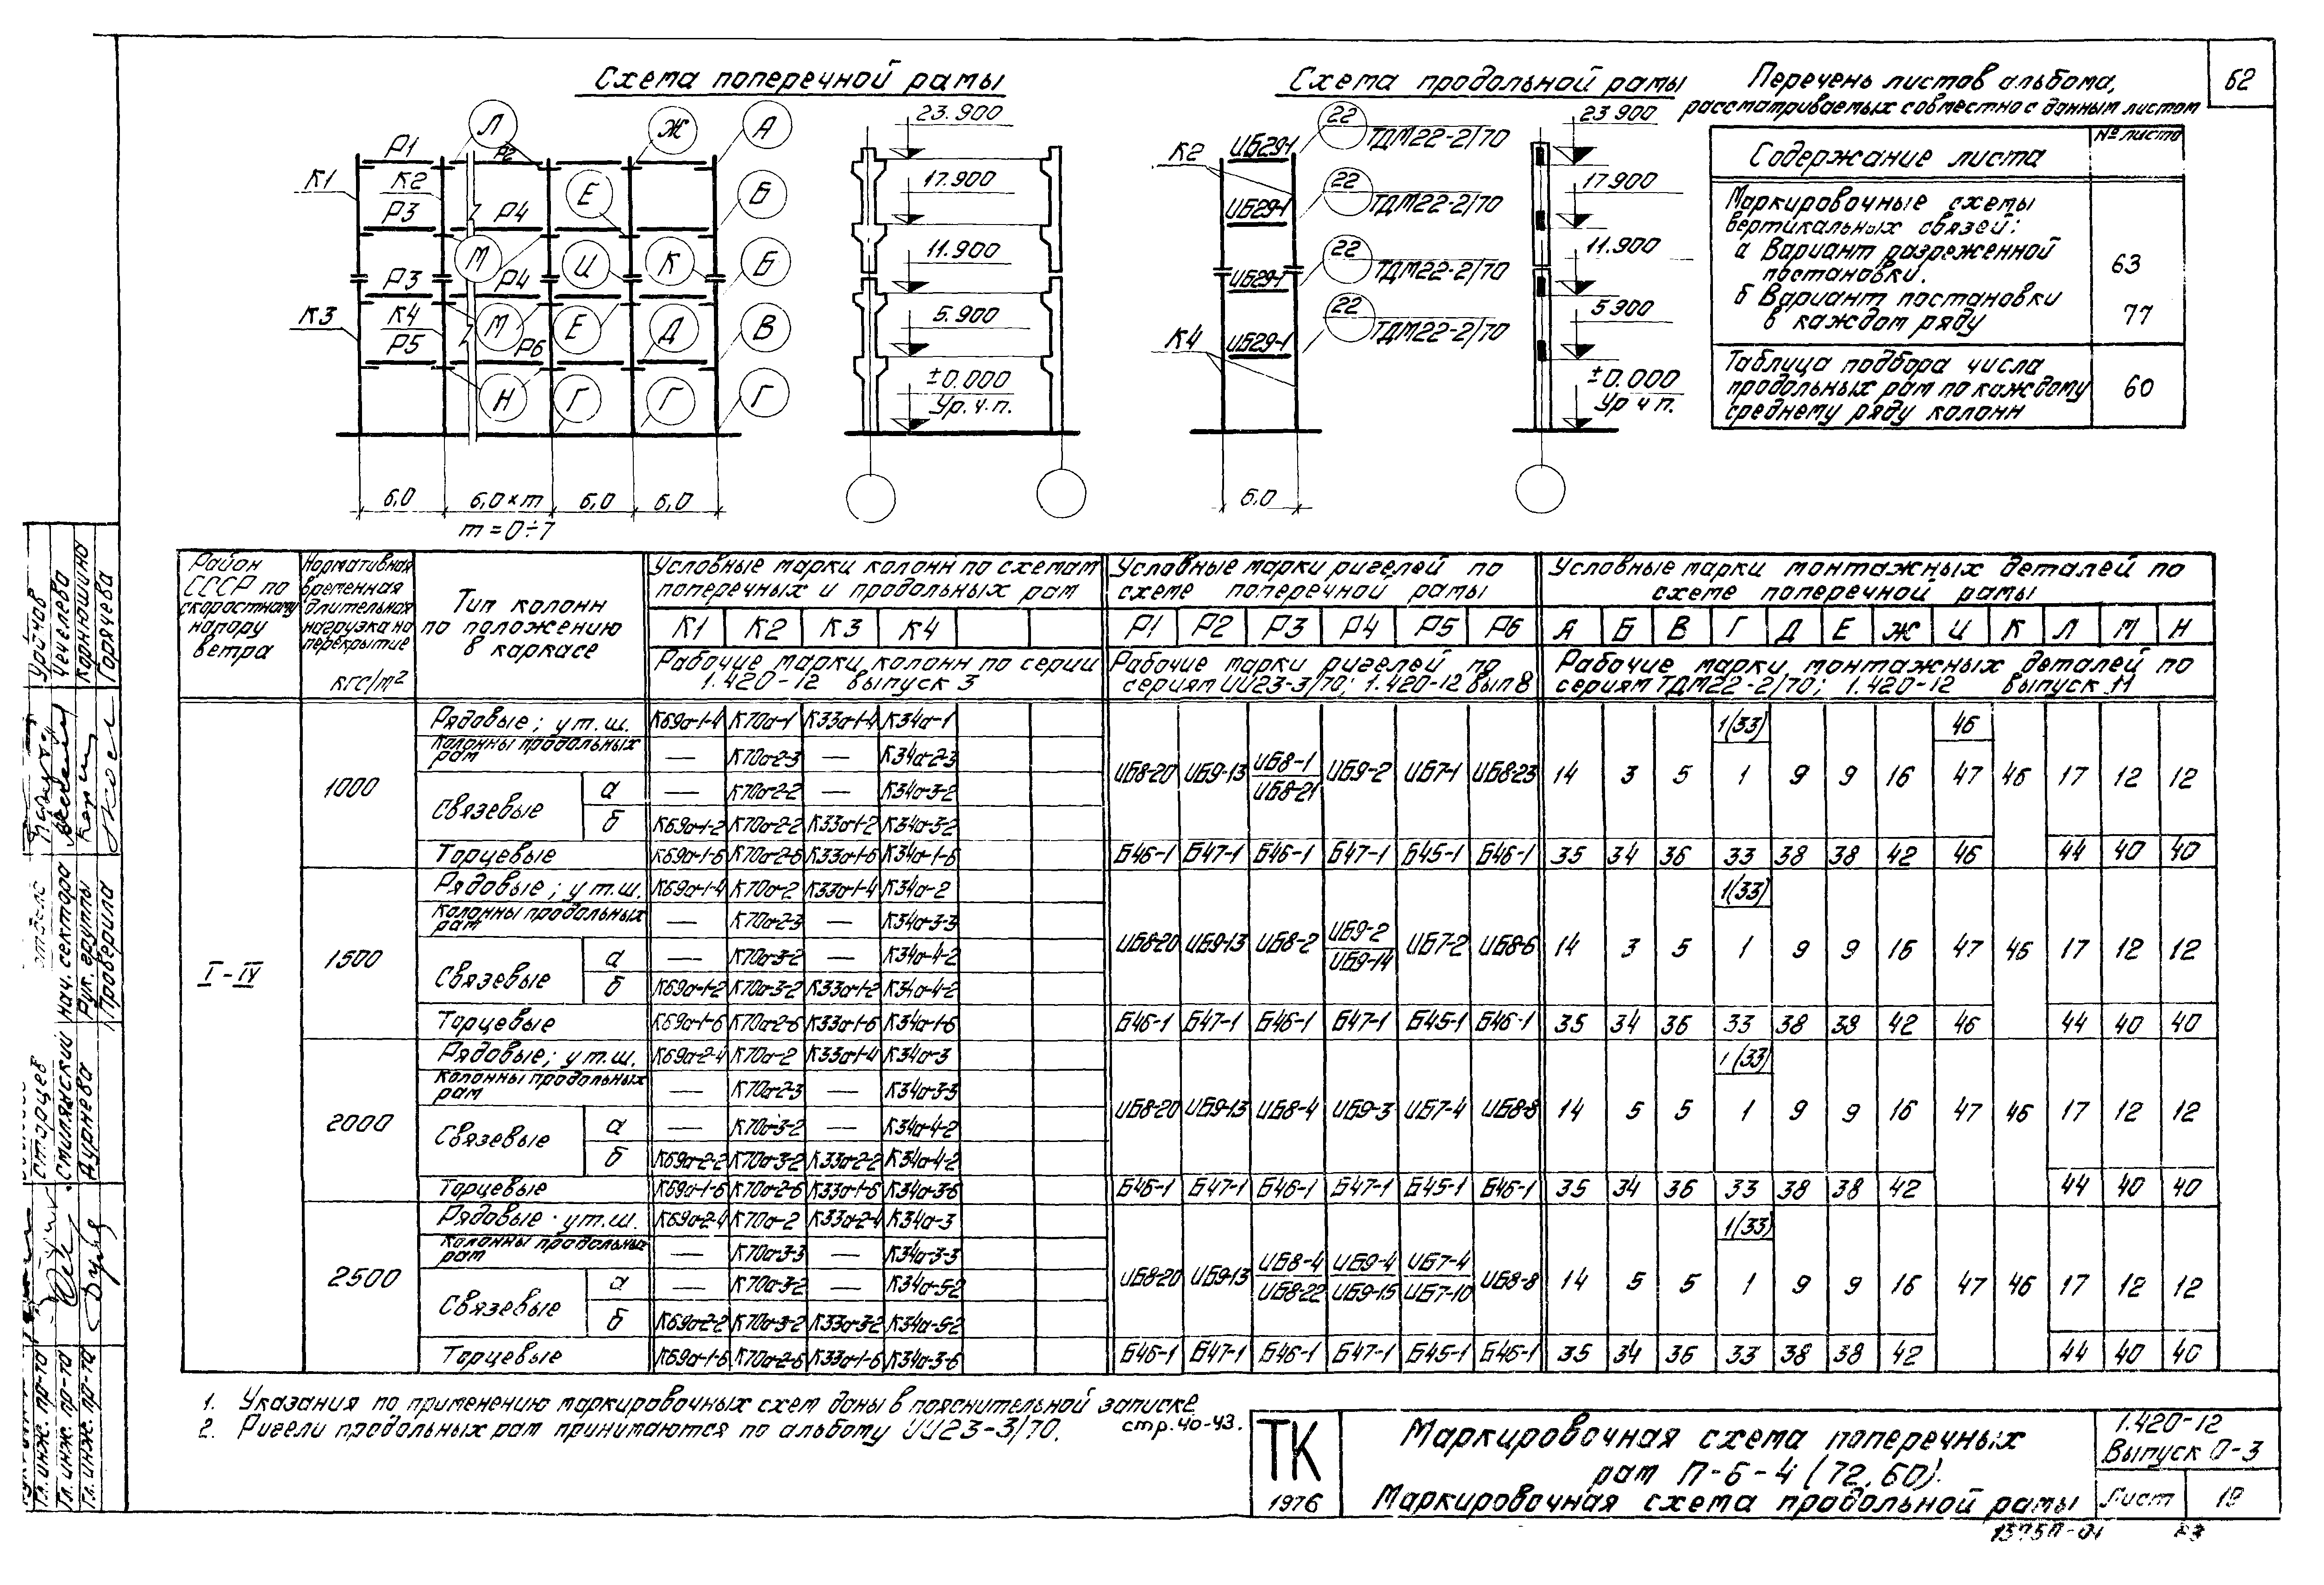 62
Схема поперечной рамы
Схема продольной рамы
Перечень листов альбома,
рассматриваемых совместно с данным листом
Содержание листа
№ листа
Маркировочные схемы
вертикальных связей:
а Вариант разреженной
постановки.
63
б Вариант постановки
в каждом ряду
77
Таблица подбора числа
продольных рам по каждому
среднему ряду колонн
60
Л Ж А
Р1 Р2
К1 К2 Е Б
Р3 Р4
М И К Б
Р3 Р4
К3 К4 М Е Д В
Р5 Р6
Н Г Г Г
6,0 6,0×m 6,0 6,0
m=0÷7
23.900
17.900
11.900
5.900
±0.000
Ур.ч.п.
К2 ИБ29-1 22 ТДМ22-2/70
ИБ29-1 22 ТДМ22-2/70
ИБ29-1 22 ТДМ22-2/70
К4 ИБ29-1 22 ТДМ22-2/70
6,0
23 900
17 900
11.900
5 900
±0.000
Ур ч п.
Район СССР по скоростному напору ветра
Нормативная временная длительная нагрузка на перекрытие кгс/м²
Тип колонн по положению в каркасе
Условные марки колонн по схемам поперечных и продольных рам
Условные марки ригелей по схеме поперечной рамы
Условные марки монтажных деталей по схеме поперечной рамы
К1 К2 К3 К4 Р1 Р2 Р3 Р4 Р5 Р6 А Б В Г Д Е Ж И К Л М Н
Рабочие марки колонн по серии 1.420-12 выпуск 3
Рабочие марки ригелей по сериям ИИ23-3/70; 1.420-12 вып 8
Рабочие марки монтажных деталей по сериям ТДМ22-2/70; 1.420-12 выпуск 11
I-IV
1000
Рядовые; у т.ш. К69а-1-4 К70а-1 К33а-1-4 К34а-1 1(33) 46
Колонны продольных рам — К70а-2-3 — К34а-2-3
ИБ8-20 ИБ9-13 ИБ8-1 ИБ8-21 ИБ9-2 ИБ7-1 ИБ8-23 14 3 5 1 9 9 16 47 46 17 12 12
Связевые а — К70а-2-2 — К34а-3-2
б К69а-1-2 К70а-2-2 К33а-1-2 К34а-3-2
Торцевые К69а-1-6 К70а-2-6 К33а-1-6 К34а-1-6 Б46-1 Б47-1 Б46-1 Б47-1 Б45-1 Б46-1 35 34 36 33 38 38 42 46 44 40 40
1500
Рядовые; у т.ш. К69а-1-4 К70а-2 К33а-1-4 К34а-2 1(33)
Колонны продольных рам — К70а-2-3 — К34а-3-3
ИБ8-20 ИБ9-13 ИБ8-2 ИБ9-2 ИБ9-14 ИБ7-2 ИБ8-6 14 3 5 1 9 9 16 47 46 17 12 12
Связевые а — К70а-3-2 — К34а-4-2
б К69а-1-2 К70а-3-2 К33а-1-2 К34а-4-2
Торцевые К69а-1-6 К70а-2-6 К33а-1-6 К34а-1-6 Б46-1 Б47-1 Б46-1 Б47-1 Б45-1 Б46-1 35 34 36 33 38 39 42 46 44 40 40
2000
Рядовые; у т.ш. К69а-2-4 К70а-2 К33а-1-4 К34а-3 1(33)
Колонны продольных рам — К70а-2-3 — К34а-3-3
ИБ8-20 ИБ9-13 ИБ8-4 ИБ9-3 ИБ7-4 ИБ8-8 14 5 5 1 9 9 16 47 46 17 12 12
Связевые а — К70а-3-2 — К34а-4-2
б К69а-2-2 К70а-3-2 К33а-2-2 К34а-4-2
Торцевые К69а-1-6 К70а-2-6 К33а-1-6 К34а-3-6 Б46-1 Б47-1 Б46-1 Б47-1 Б45-1 Б46-1 35 34 36 33 38 38 42 44 40 40
2500
Рядовые · у т.ш. К69а-2-4 К70а-2 К33а-2-4 К34а-3 1(33)
Колонны продольных рам — К70а-3-3 — К34а-3-3
ИБ8-20 ИБ9-13 ИБ8-4 ИБ8-22 ИБ9-4 ИБ9-15 ИБ7-4 ИБ7-10 ИБ8-8 14 5 5 1 9 9 16 47 46 17 12 12
Связевые а — К70а-3-2 — К34а-5-2
б К69а-2-2 К70а-3-2 К33а-3-2 К34а-5-2
Торцевые К69а-1-6 К70а-2-6 К33а-1-6 К34а-3-6 Б46-1 Б47-1 Б46-1 Б47-1 Б45-1 Б46-1 35 34 36 33 38 38 42 44 40 40
1. Указания по применению маркировочных схем даны в пояснительной записке
стр.40-43.
2. Ригели продольных рам принимаются по альбому ИИ23-3/70.
ТК
1976
Маркировочная схема поперечных
рам П-6-4 (72,60).
Маркировочная схема продольной рамы
1.420-12
Выпуск 0-3
Лист
13757-01
Чечелева
Корнюшина
Горячева
нач. сектора
Рук. группы
Проверила
Старцев
Смилянский
Дурнева
Гл. инж. пр-та
Гл. инж. пр-та
Гл. инж. пр-та